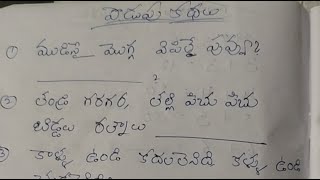 పొడుపు కథలు
① ముడిస్తే మొగ్గ విప్పితే పువ్వు?
② తండ్రి గరగర, తల్లి పిచు పిచు
బిడ్డలు రత్నాలు
③ కాళ్ళు ఉండి కదలలేనిది కళ్ళు ఉండి